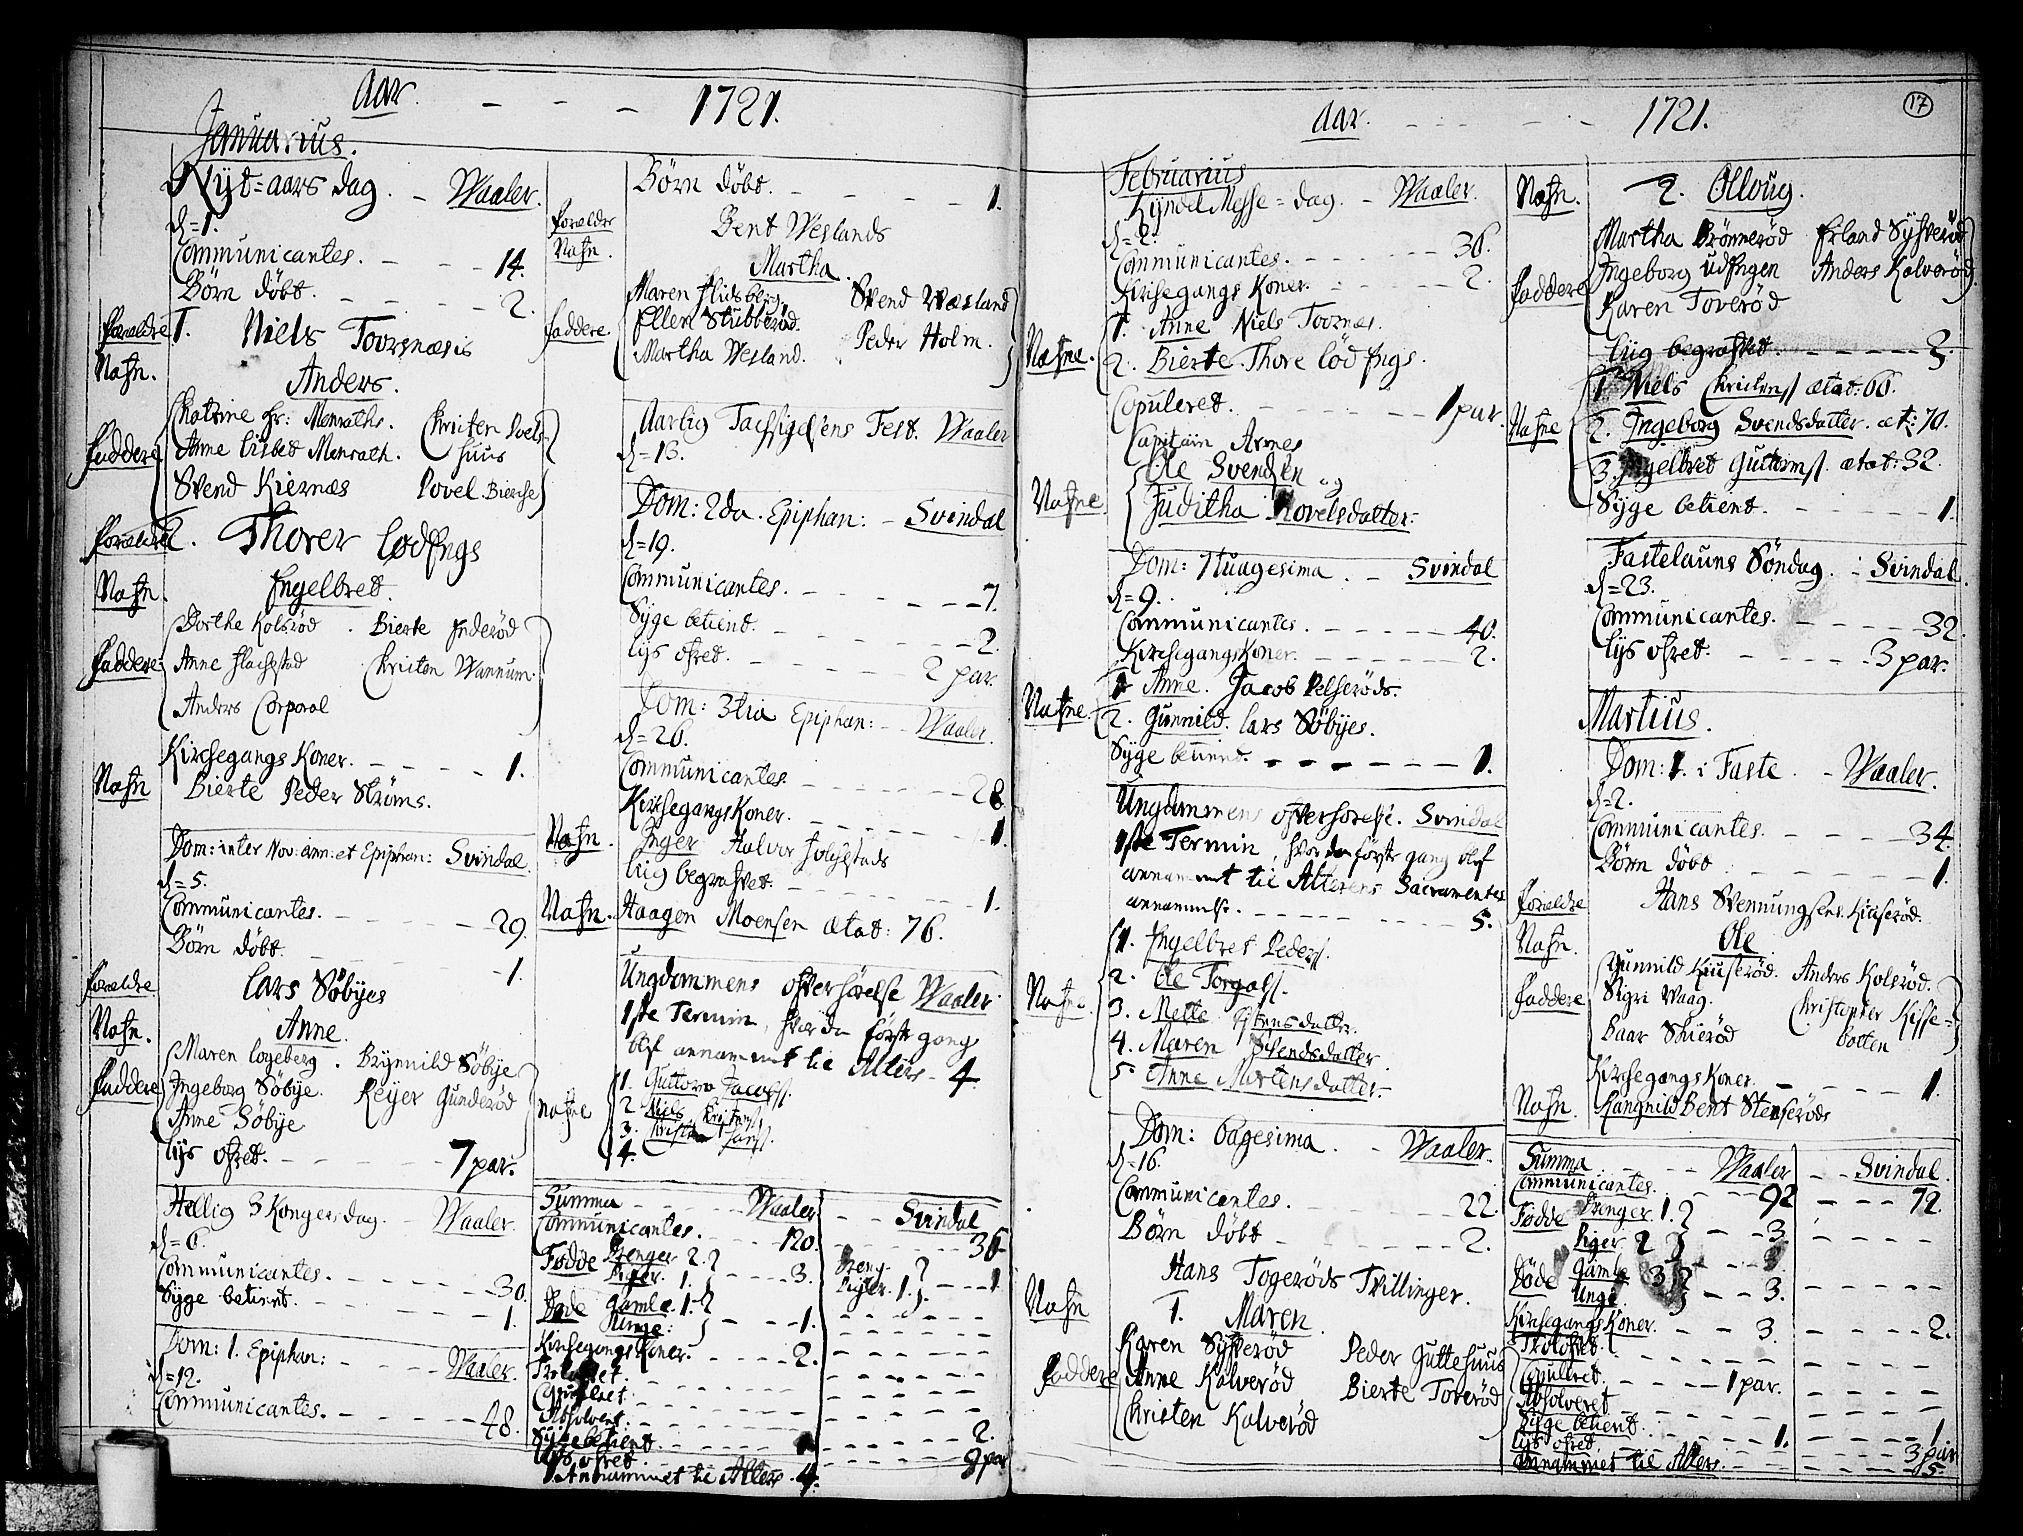 Aar. - - - 1721.
Januarius.
Nyt=aars dag. - Waaler.
d=1.
Communicantes. - - - 14.
Börn döbt. - - - 2.
Forældre 1. Niels Toorsnæsis
Nafn. Anders.
Chatrine hr: Menraths. Christen Poels-
Faddere Anne Lisbet Menrath. huus
Svend Kiernæs Povel Bierche
Forældre 2. Thorer Lodfngs
Nafn. Jngelbret.
Dorthe Kolsrød. Bierte Jnderöd
Faddere Anne Hachestad Christen Wannum.
Anders Corporal
Kirchegangs Koner. - - - 1.
Nafn Bierte Peder Ströms.
Dom: inter Nov: ann: et Epiphan: Svindal.
d=5.
Communicantes. - - - 29.
Börn döbt. - - - 1.
Forældre Lars Söbyes
Nafn. Anne.
Maren Logeberg. Brynnild Söbye
Faddere Jngeborg Söbye. Reyer Gunderöd
Anne Söbye
Lys ofret. - - - 7 par.
Hellig 3 Kongersdag. - Waaler.
d=6.
Communicantes. - - - 30.
Syge betient. - - - 1.
Dom: 1. Epiphan: - - Waaler.
d=12.
Communicantes. - - - 48.
Börn döbt. - - - 1.
Forældre Bent Weslands
Nafn. Martha.
Maren Flidsberg. Svend Wæsland
Faddere. Ellen Stubberöd. Peder Holm.
Martha Wesland.
Aarlig Tachsigelsens Fest. Waaler
d=13.
Dom: 2da. Epiphan: - Svindal
d=19.
Communicantes. - - - 7.
Syge betient. - - - 2.
Lys ofret. - - - 2 par.
Dom: 3tia Epiphan: - Waaler.
d=26.
Communicantes. - - - 28
Kirchegangs Koner. - - - 1.
Nafn. Jnger Halvor
Liig begrafvet. - - - 1.
Nafn. Haagen Moensen ætat: 76.
Ungdommens ofverhörelse Waaler.
1ste Termin, hvor da förste gang
blef annammet til Alters - 4.
1. Guttorm Jacobss.
Nafne 2. Niels Christenss.
3. Hanss.
4.
Summa - - Waaler - - Svindal
Communicantes. - - 120. - - 36
Födde Drenger 2. Piger. 1. - - 3. Dreng- Piger 1. - - 1
Döde Gamle. 1. Unge: - - 1.
Kirchegangs Koner. - - 2.
Trolofvet.
Copuleret.
Absolveret.
Syge betient. - - 2.
Lys ofret. - - 9 par
Annammet til Alters. 4.
Aar. - - - 1721. 17
Februarius
Kyndel Messe=dag. - Waaler.
d=2.
Communicantes. - - - 36.
Kirchegangs Koner. - - - 2.
1. Anne Niels Toornæs.
Nafne. 2. Bierte Thore Lödfngs.
Copuleret. - - - 1 par.
Capitain Arnes
Ole Svendsen og
Nafne Juditha Povelsdatter.
Dom: 7tuagesima. - Svindal
d=9.
Communicantes. - - - 40.
Kirchegangs Koner. - - - 2.
1 Anne. Jacob Pelseröds.
Nafne. 2. Gunnild. Lars Söbyes.
Syge betient. - - - 1.
Ungdommens ofverhorelse. Svindal
1ste Termin, hvor da förste gang blef
annammet til Alterens Sacramentes
annammelse. - - - 5.
1. Jngelbret Pederss.
2. Ole Torgalss.
Nafne 3. Mette datter.
4. Maren Svendsdatter
5 Anne Mortensdatter.
Dom: 6agesima. - Waaler.
d=16.
Communicantes. - - - 22.
Börn döbt - - - 2.
Hans Togeröds Tvillinger.
Nafn 1. Maren.
Karen Syfteröd Peder Guttehuus
Faddere Anne Kalveröd Bierte Toveröd
Christen Kalveröd
Nafn. 2. Olloug.
Martha Brönneröd Erland Syfteröd
Faddere Jngeborg udJngen Anders Kolveröd.
Karen Toveröd
Liig begrafvet. - - - 3.
1 Niels Christenss ætat: 66.
Nafne 2. Jngeborg Svendsdatter. æt: 70.
3. Jngelbret Guttormss. ætat: 32.
Syge betient. - - - 1.
Fastelauns Söndag. - Svindal.
d=23.
Communicantes. - - - 32.
Lys ofret. - - - 3 par.
Martius.
Dom: 1. i Faste. - Waaler.
d=2.
Communicantes. - - - 34.
Börn döbt - - - 1.
Forældre Hans Svennungsens Kiilseröd.
Nafn. Ole
Gunnild Kiilseröd. Anders Kolsröd.
Faddere Sigri Waag. Christopher Kisse-
Baar Skieröd botten
Kirchegangs Koner. - - - 1.
Nafn. Rangnild Bent Stenseröds
Summa - - Waaler - - Svindal.
Communicantes. - - 92 - - 72.
Födde Drenger 1. Piger 2 - - 3.
Döde Gamle 3 Unge - - 3.
Kirchegangs Koner. - - 3. - - 2.
Trolofvet.
Copulleret. - - 1 par.
Absolveret
Syge betient. - - 1. - - 1
Lys ofret - - 3 par
Annammet til Alters. - - 5.